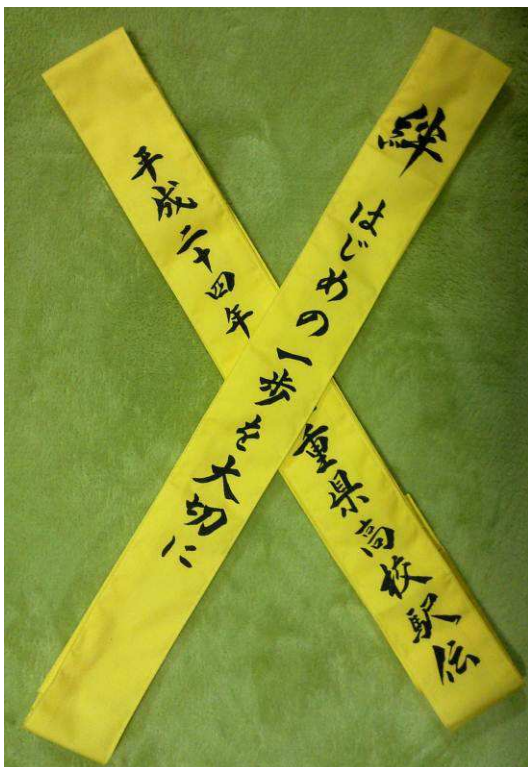 絆 はじめの一歩を大切に
平成二十四年 重県高校駅伝